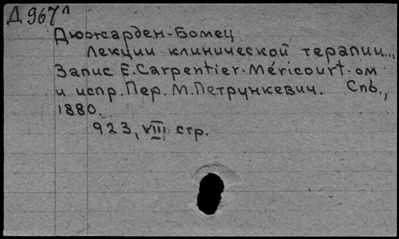 Д 967л
Дюжарден-Бомец
Лекции клинической терапии...
Запис E.Carpentier-Méricourt-ом
и испр. Пер. М.Петрункевич. Спб.,
1880.
923, VIII стр.